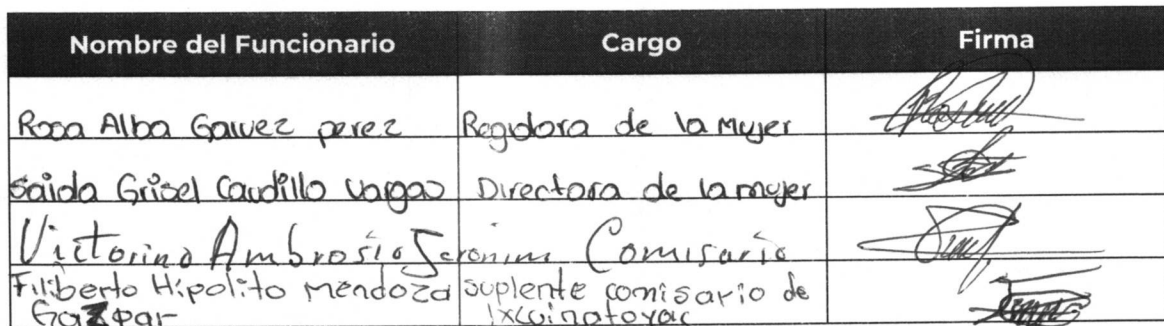 Nombre del Funcionario Cargo Firma
Rosa Alba Galvez perez Regidora de la Mujer
Saida Grisel Caudillo vargas Directora de la mujer
Victorino Ambrosio Comisario
Filiberto Hipolito mendoza suplente comisario de
Gazpar Ixcuinatoyac